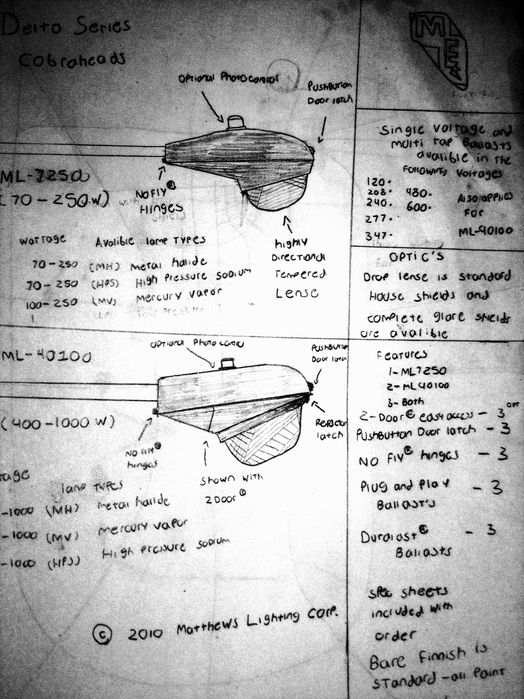 Delta Series
Cobraheads
ML-7250
(70-250W)
Optional Photocontrol
Pushbutton
Door latch
No Fly®
Hinges
highly
Directional
Tempered
Lense
wattage Avalible lamp Types
70-250 (MH) Metal halide
70-250 (HPS) High Pressure Sodium
100-250 (MV) Mercury vapor
ML-40100
(400-1000 W)
optional Photo control
Pushbutton
Door latch
Refractor
latch
No Fly®
hinges
Shown with
2Door®
lamp TYPES
-1000 (MH) Metal halide
-1000 (MV) Mercury vapor
-1000 (HPS) High Pressure Sodium
© 2010 Matthews Lighting Corp.
Single voltage and
multi tap Ballasts
avalible in the
following voltages
120.
208. 480.
240. 600.
277.
347.
Also applies
for
ML-40100
OPTIC'S
Drop lense is standard
House shields and
complete glare shields
are avalible
Features
1-ML7250
2-ML40100
3-Both
2-Door® easy access - 3
Pushbutton Door latch - 3
No Fly® hinges - 3
Plug and Play - 3
Ballast's
Duralast® - 3
Ballasts
spec sheets
included with
order
Bare Finnish is
standard -all Paint